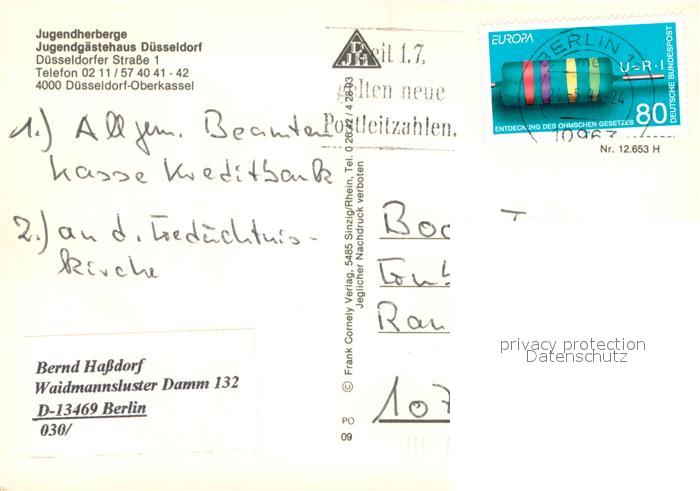 Jugendherberge
Jugendgästehaus Düsseldorf
Düsseldorfer Straße 1
Telefon 02 11 / 57 40 41 - 42
4000 Düsseldorf-Oberkassel
1.) Allgem. Beamten
kasse Kreditbank
2.) an d. Gedächtnis-
kirche
Bernd Haßdorf
Waidmannsluster Damm 132
D-13469 Berlin
030/
DJH
seit 1.7.
gelten neue
Postleitzahlen.
© Frank Cornely Verlag, 5485 Sinzig/Rhein, Tel. 0 26 42 / 4 28 03
Jeglicher Nachdruck verboten
PO
09
EUROPA
BERLIN
U=R·I
80
DEUTSCHE BUNDESPOST
ENTDECKUNG DES OHMSCHEN GESETZES
10963
Nr. 12.653 H
107
privacy protection
Datenschutz